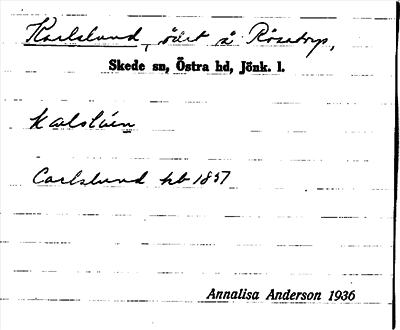 Karlslund, öde t å Rösatorp,
Skede sn, Östra hd, Jönk. l.
Carlslund hb 1857
Annalisa Anderson 1936